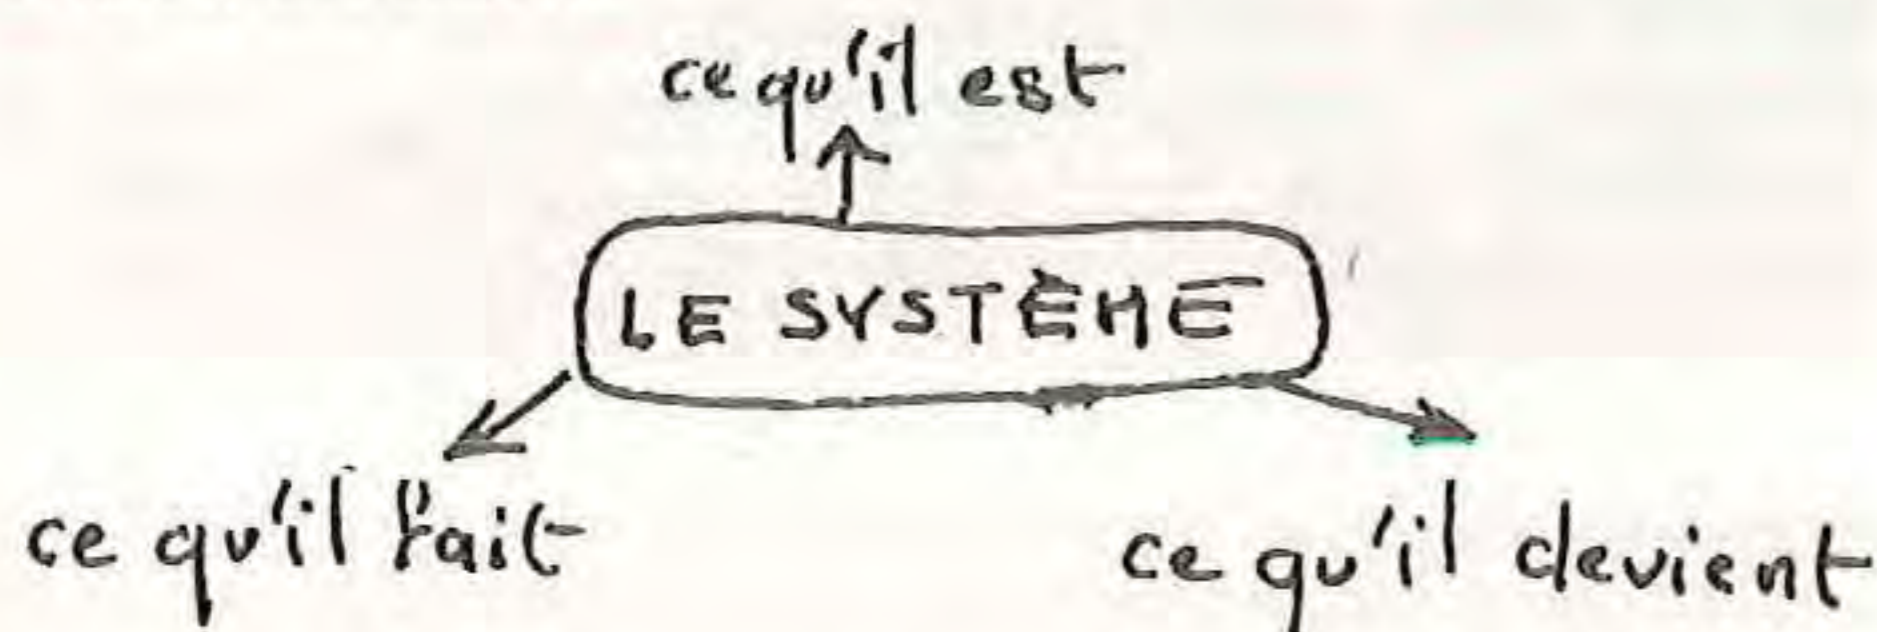 ce qu'il est
LE SYSTÈME
ce qu'il fait
ce qu'il devient